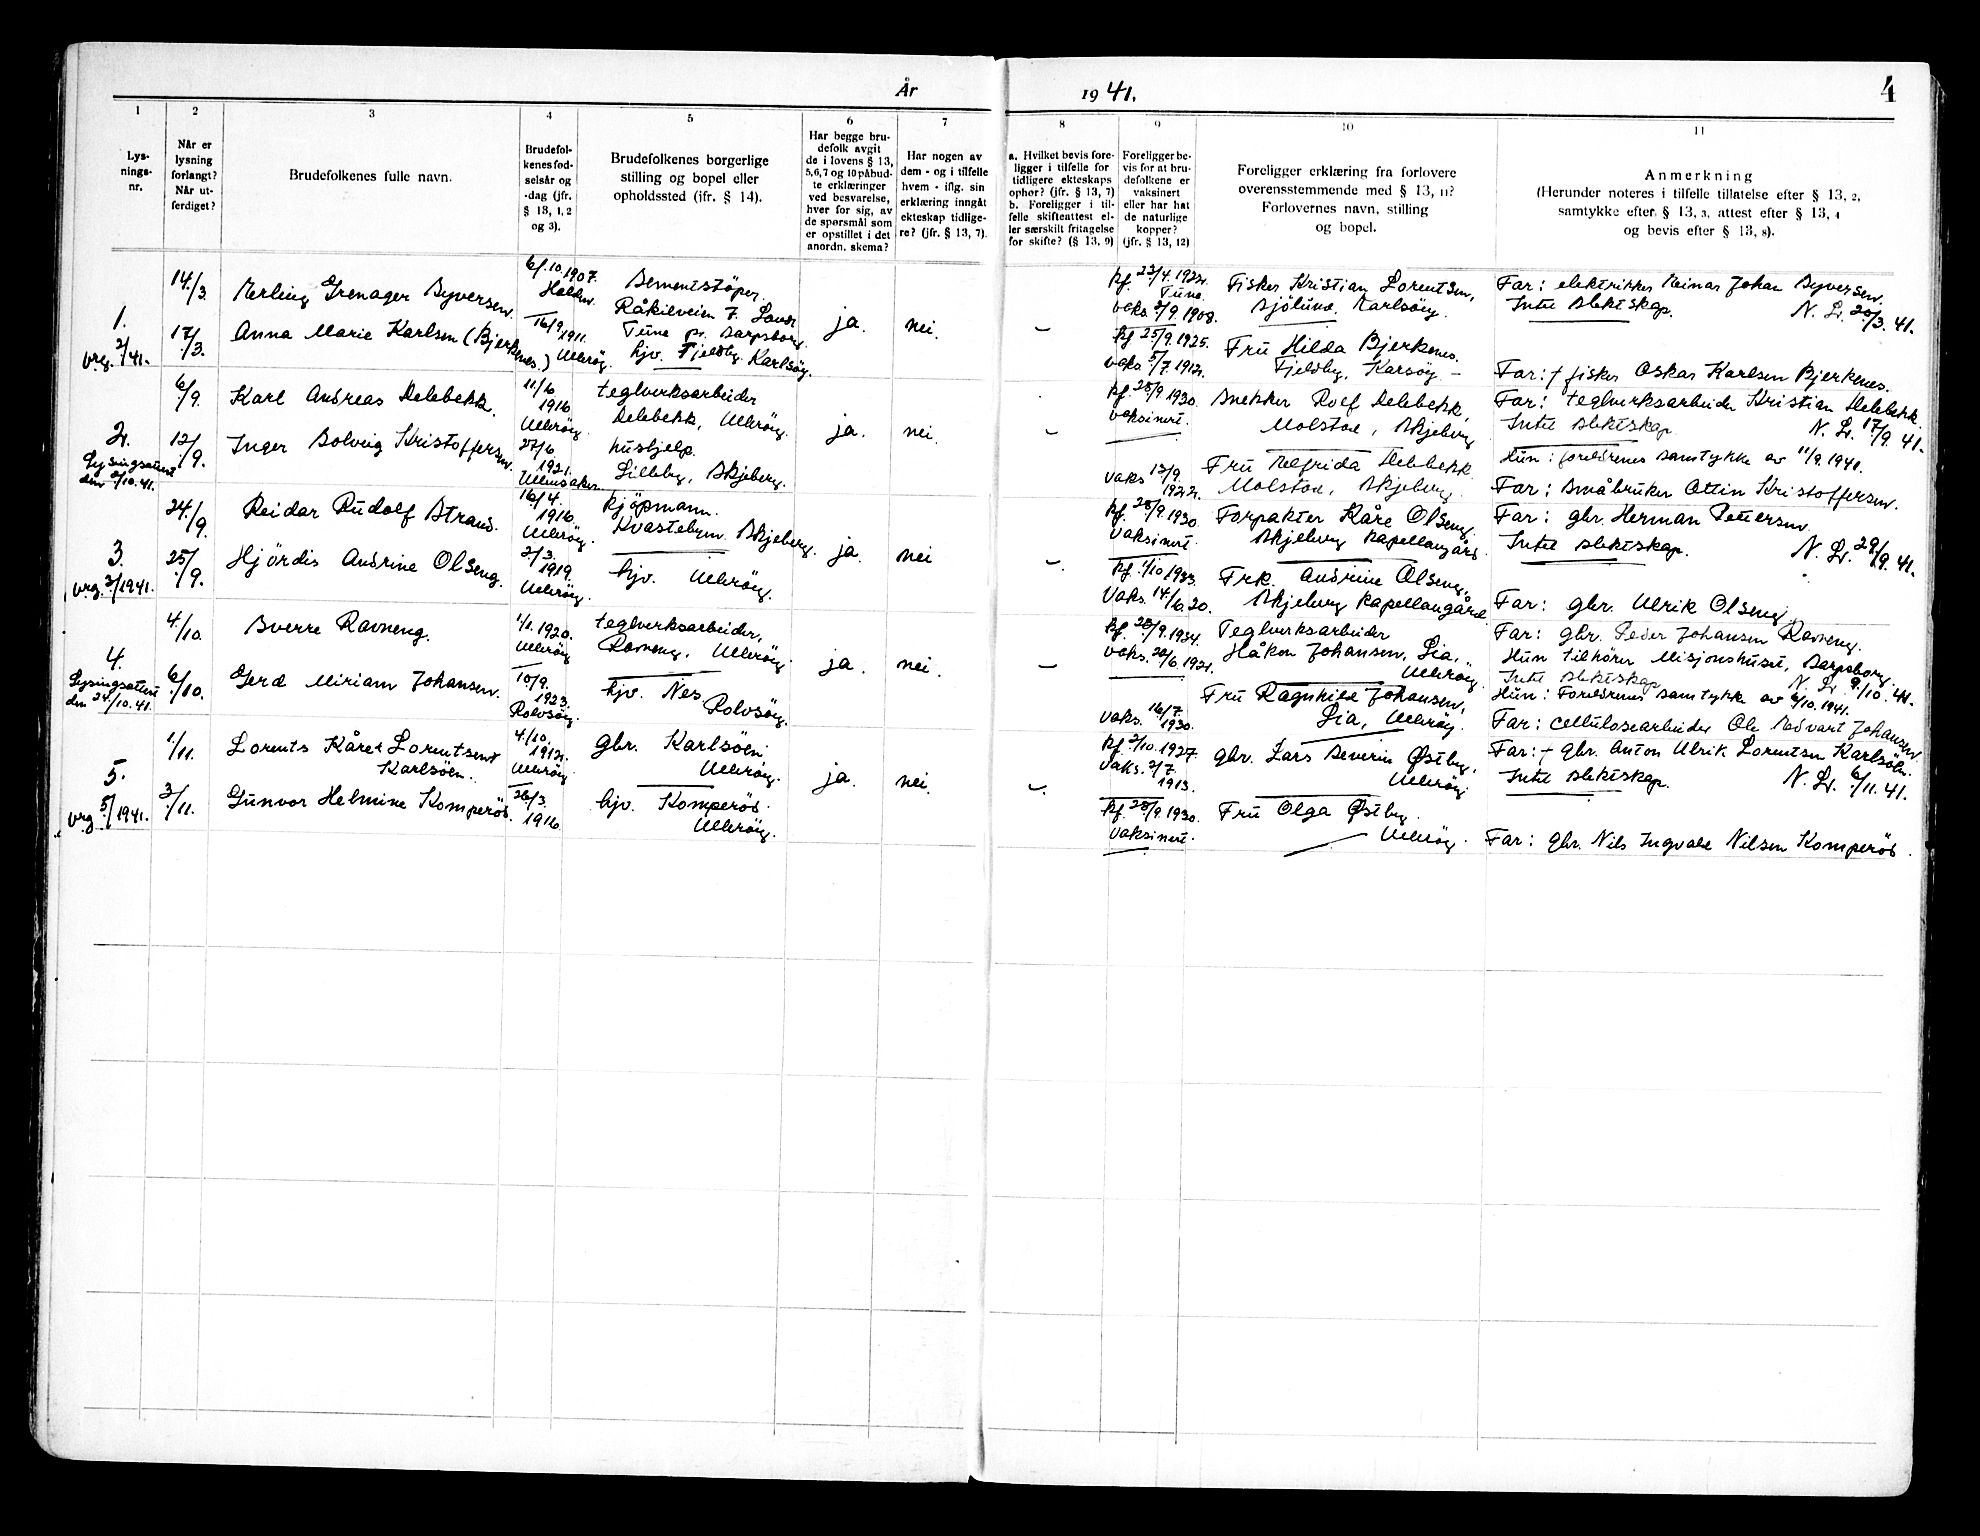 År
19 41.
4
1
2
3
4
5
6
7
8
9
10
11
Lys-
nings-
nr.
Når er
lysning
forlangt?
Når ut-
ferdiget?
Brudefolkenes fulle navn.
Brudefol-
kenes fød-
selsår og
-dag (jfr.
§ 13, 1, 2
og 3).
Brudefolkenes borgerlige
stilling og bopel eller
opholdssted (jfr. § 14).
Har begge bru-
defolk avgit
de i lovens § 13,
5,6,7 og 10 påbud-
te erklæringer
ved besvarelse,
hver for sig, av
de spørsmål som
er opstillet i det
anordn. skema?
Har nogen av
dem - og i tilfelle
hvem - iflg. sin
erklæring inngåt
ekteskap tidlige-
re? (jfr. § 13, 7).
a. Hvilket bevis fore-
ligger i tilfelle for
tidligere ekteskaps
ophør? (jfr. § 13, 7)
b. Foreligger i til-
felle skifteattest el-
ler særskilt fritagelse
for skifte? (§ 13, 9)
Foreligger be-
vis for at bru-
defolkene er
vaksinert
eller har hat
de naturlige
kopper?
(jfr. § 13, 12)
Foreligger erklæring fra forlovere
overensstemmende med § 13, 11?
Forlovernes navn, stilling
og bopel.
Anmerkning
(Herunder noteres i tilfelle tillatelse efter § 13, 2,
samtykke efter § 13, 3, attest efter § 13, 4
og bevis efter § 13, 8).
1.
vrg. 2/41.
14./3.
17/3.
Erling Grenager Syversen.
Anna Marie Karlsen (Bjerke-
nes.)
6/.10.1907.
Halden.
16/9.
1911.
Ullerøy.
Sementstöper.
Råkilveien 7. Lande
Tune pr. Sarpsborg.
hjv. Fjeldby. Karlsöy.
ja.
nei.
–
kf. 23/4.1922.
Tune.
vaks. 2/9.1908.
kf 25/9.1925.
vaks. 5/7.1912.
Fisker Kristian Lorentsen,
Sjölund. Karlsöy.
Fru Hilda Bjerkenes.
Fjeldby, Karsöy –
Far: elektriker Einar Johan Syversen.
Intet slektskap.
N. Lr. 20/3. 41.
Far: † fisker Oskar Karlsen Bjerkenes.
2.
Lysingsattest
den 2/10.41.
6/9.
12/9.
Karl Andreas Delebekk.
Inger Solveig Kristoffersen.
11/6
1916.
Ullerøy.
27/6
1921.
Ullensaker.
teglverksarbeider
Delebekk, Ullerøy.
hushjelp.
Lilleby, Skjeberg.
ja.
nei.
–
kf. 28/9 1930.
vaksinert.
vaks 13/9.
1922.
Snekker Rolf Delebekk,
Molstad, Skjeberg
Fru Elfrida Delebekk
Molstad, Skjeberg.
Far: teglverksarbeider Kristian Delebekk.
Intet slektskap
N. Lr. 17/9. 41.
Hun: foreldrenes samtykke av 11/9.1941.
Far: Småbruker Ottin Kristoffersen.
3.
vrg. 3/1941.
24./9.
25/9.
Reidar Rudolf Strand.
Hjördis Andrine Olseng.
16/4.
1916.
Ullerøy.
2/3.
1919.
Ullerøy.
kjöpmann.
Kvastebyen. Skjeberg.
hjv. Ullerøy.
ja.
nei
–
kf. 28/9.1930.
vaksinert.
kf. 1/10 1933.
vaks. 14./6.20.
Forpakter Kåre Olseng
Skjeberg kapellangård
Frk. Andrine Olseng.
Skjeberg kapellangård
Far: gbr. Herman Pettersen
Intet slektskap.
N. Lr. 29/9. 41.
Far: gbr. Ulrik Olseng.
4.
Lysingsattest
den 24/10.41.
4./10.
6/10.
Sverre Ravneng.
Gerd Miriam Johansen.
1/1.1920.
Ullerøy
10/9.
1923.
Rolvsöy.
teglverksarbeider,
Ravneng, Ullerøy.
hjv. Nes.
Rolvsöy.
ja.
nei.
–
kf. 28/9.1934.
vaks. 22/6.1921.
vaks. 16/7.
1930.
Teglverksarbeider
Håkon Johansen, Lia,
Ullerøy.
Fru Ragnhild Johansen,
Lia, Ullerøy.
Far: gbr. Peder Johansen Ravneng.
Hun tilhører Misjonshuset, Sarpsborg.
Intet slektskap
N. Lr. 9./10. 41.
Hun: Foreldrenes samtykke av 6/10.1941.
Far: cellulosearbeider Ole Edvart Johansen
5.
vrg. 5/1941.
1/11.
3./11.
Lorents Kåre Lorentsen
Karlsöen.
Gunvor Helmine Komperöd.
4./10.
1912.
Ullerøy.
26/3.
1916.
gbr. Karlsöen.
Ullerøy.
hjv. Komperöd.
Ullerøy.
ja.
nei.
–
kf. 2/10.1927.
vaks. 2/7.
1913.
kf. 28/9.1930.
vaksinert.
gbr. Lars Severin Østby,
Ullerøy.
Fru Olga Østby
Ullerøy.
Far: † gbr. Anton Ulrik Lorentsen Karlsöen.
Intet slektskap.
N. Lr. 6/11. 41.
Far: gbr. Nils Ingvald Nilsen Komperöd.